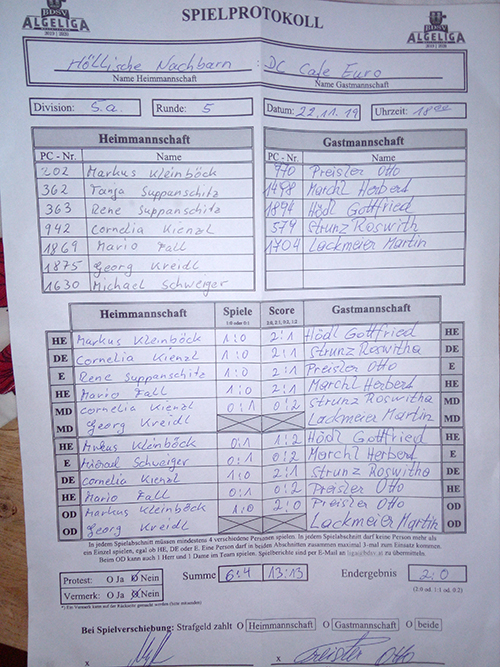 BDSV
ALGELIGA
2019 | 2020
SPIELPROTOKOLL
BDSV
ALGELIGA
2019 | 2020
Höllische Nachbarn : DC Cafe Euro
Name Heimmannschaft Name Gastmannschaft
Division: 5.a. Runde: 5 Datum: 22.11.19 Uhrzeit: 18 00
Heimmannschaft Gastmannschaft
PC - Nr. Name PC - Nr. Name
202 Markus Kleinböck 970 Preisler Otto
362 Tanja Suppanschitz 1498 Marchl Herbert
363 Rene Suppanschitz 1894 Hödl Gottfried
942 Cornelia Kienzl 579 Strunz Roswith
1869 Mario Fall 1704 Lackmeier Martin
1875 Georg Kreidl
1630 Michael Schweiger
Heimmannschaft Spiele Score Gastmannschaft
1:0 oder 0:1 2:0, 2:1, 0:2, 1:2
HE Markus Kleinböck 1:0 2:1 Hödl Gottfried HE
DE Cornelia Kienzl 1:0 2:1 Strunz Roswitha DE
E Rene Suppanschitz 1:0 2:1 Preisler Otto E
HE Mario Fall 1:0 2:1 Marchl Herbert HE
MD Cornelia Kienzl 0:1 0:2 Strunz Roswitha MD
MD Georg Kreidl Lackmeier Martin MD
HE Markus Kleinböck 0:1 1:2 Hödl Gottfried HE
E Michael Schweiger 0:1 0:2 Marchl Herbert E
DE Cornelia Kienzl 1:0 2:1 Strunz Roswitha DE
HE Mario Fall 0:1 0:2 Preisler Otto HE
OD Markus Kleinböck 1:0 2:0 Preisler Otto OD
OD Georg Kreidl Lackmeier Martin OD
In jedem Spielabschnitt müssen mindestens 4 verschiedene Personen spielen. In jedem Spielabschnitt darf keine Person mehr als
ein Einzel spielen, egal ob HE, DE oder E. Eine Person darf in beiden Abschnitten zusammen maximal 3-mal zum Einsatz kommen.
Beim OD kann auch 1 Herr und 1 Dame im Team spielen. Spielberichte sind per E-Mail an liga@bdsv.at zu übermitteln.
Protest: O Ja O Nein Summe 6:4 13:13 Endergebnis 2:0
Vermerk: O Ja O Nein (2:0 od. 1:1 od. 0:2)
*) Ein Vermerk kann auf der Rückseite gemacht werden (bitte umwenden)
Bei Spielverschiebung: Strafgeld zahlt O Heimmannschaft O Gastmannschaft O beide
x x Preisler Otto